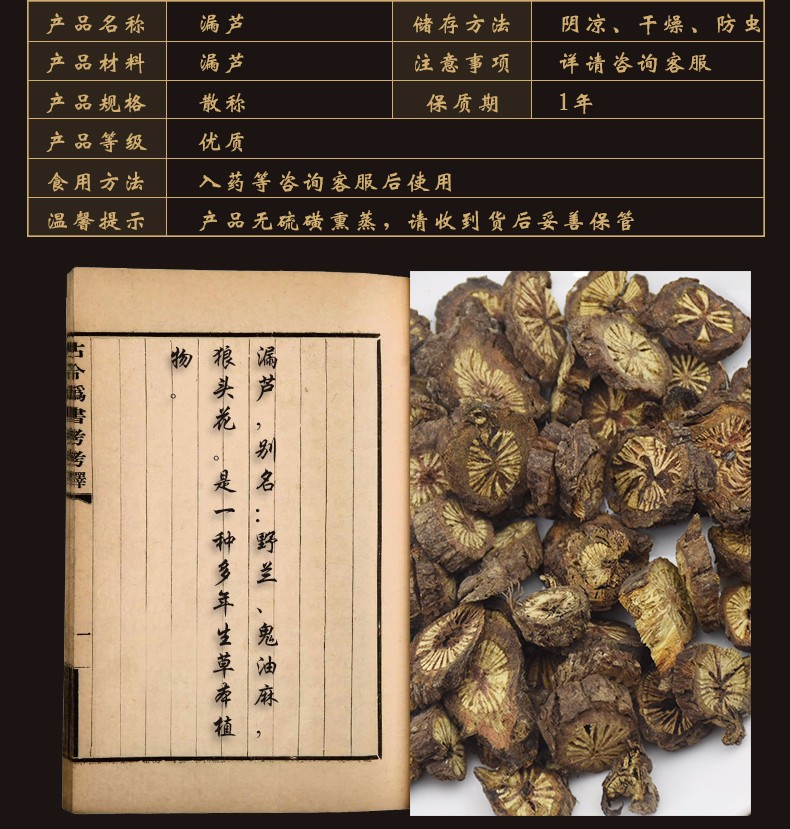 产品名称 漏芦 储存方法 阴凉、干燥、防虫
产品材料 漏芦 注意事项 详请咨询客服
产品规格 散称 保质期 1年
产品等级 优质
食用方法 入药等咨询客服后使用
温馨提示 产品无硫磺熏蒸，请收到货后妥善保管
漏芦，别名：野兰、鬼油麻，
狼头花。是一种多年生草本植
物。
古今偽書考考釋
一